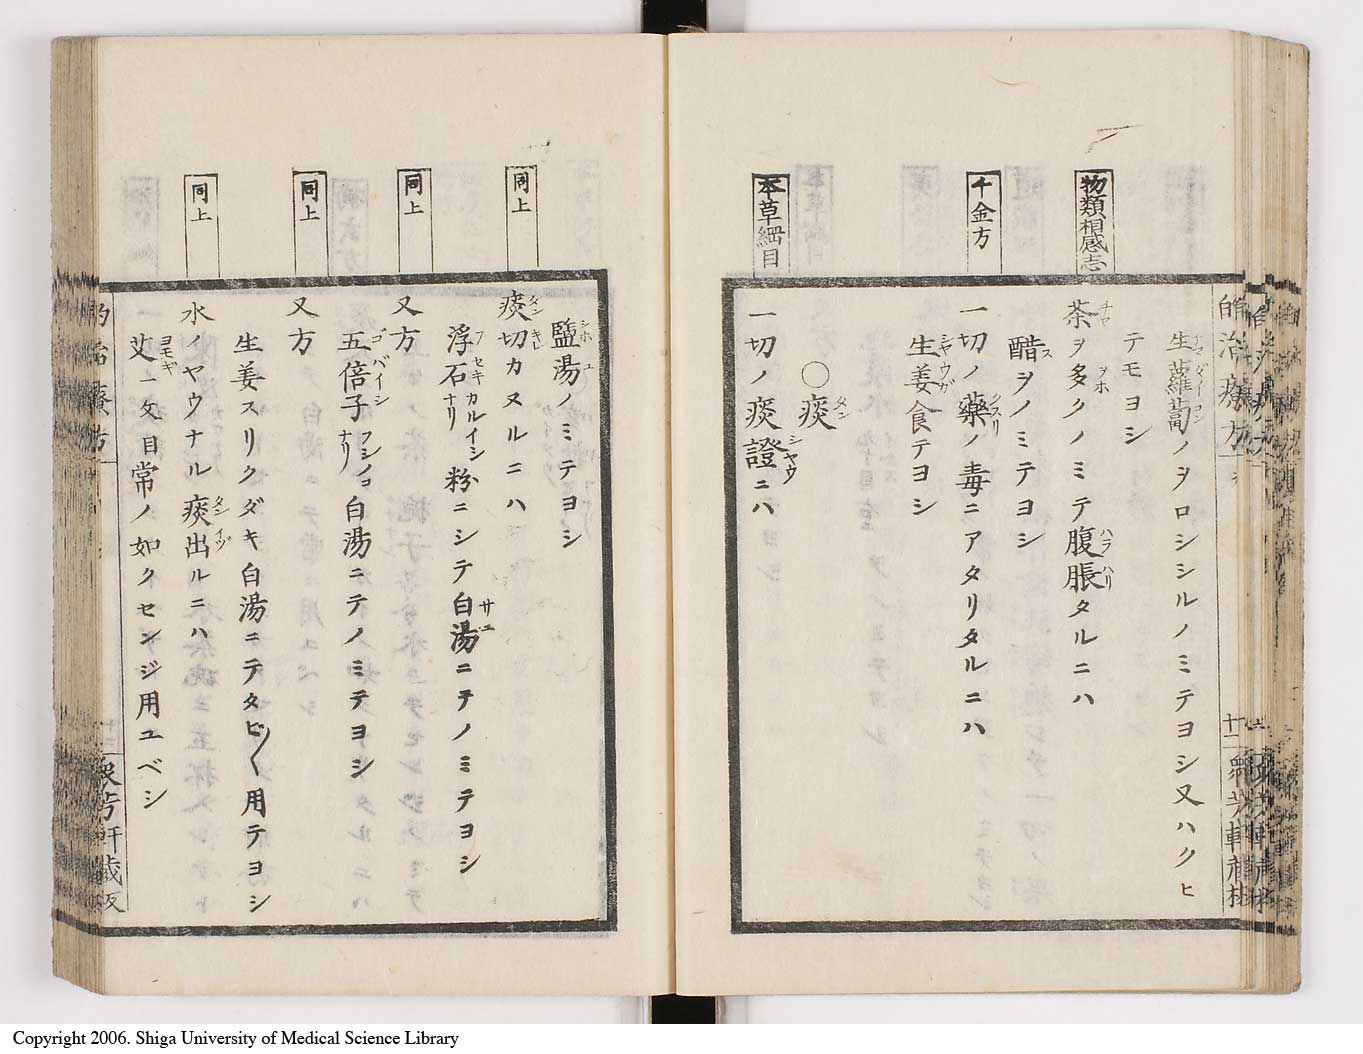 生蘿蔔ノヲロシシルノミテヨシ又ハクヒ
テモヨシ
物類相感志
茶ヲ多クノミテ腹脹タルニハ
醋ヲノミテヨシ
千金方
一切ノ藥ノ毒ニアタリタルニハ
生姜食テヨシ
〇痰
本草綱目
一切ノ痰證ニハ
鹽湯ノミテヨシ
同上
痰切カヌルニハ
浮石カルイシナリ粉ニシテ白湯ニテノミテヨシ
同上
又方
五倍子フシノコナリ白湯ニテノミテヨシ
同上
又方
生姜スリクダキ白湯ニテタビ〱用テヨシ
同上
水ノヤウナル痰出ルニハ
艾一文目常ノ如クセンジ用ユベシ
Copyright 2006. Shiga University of Medical Science Library